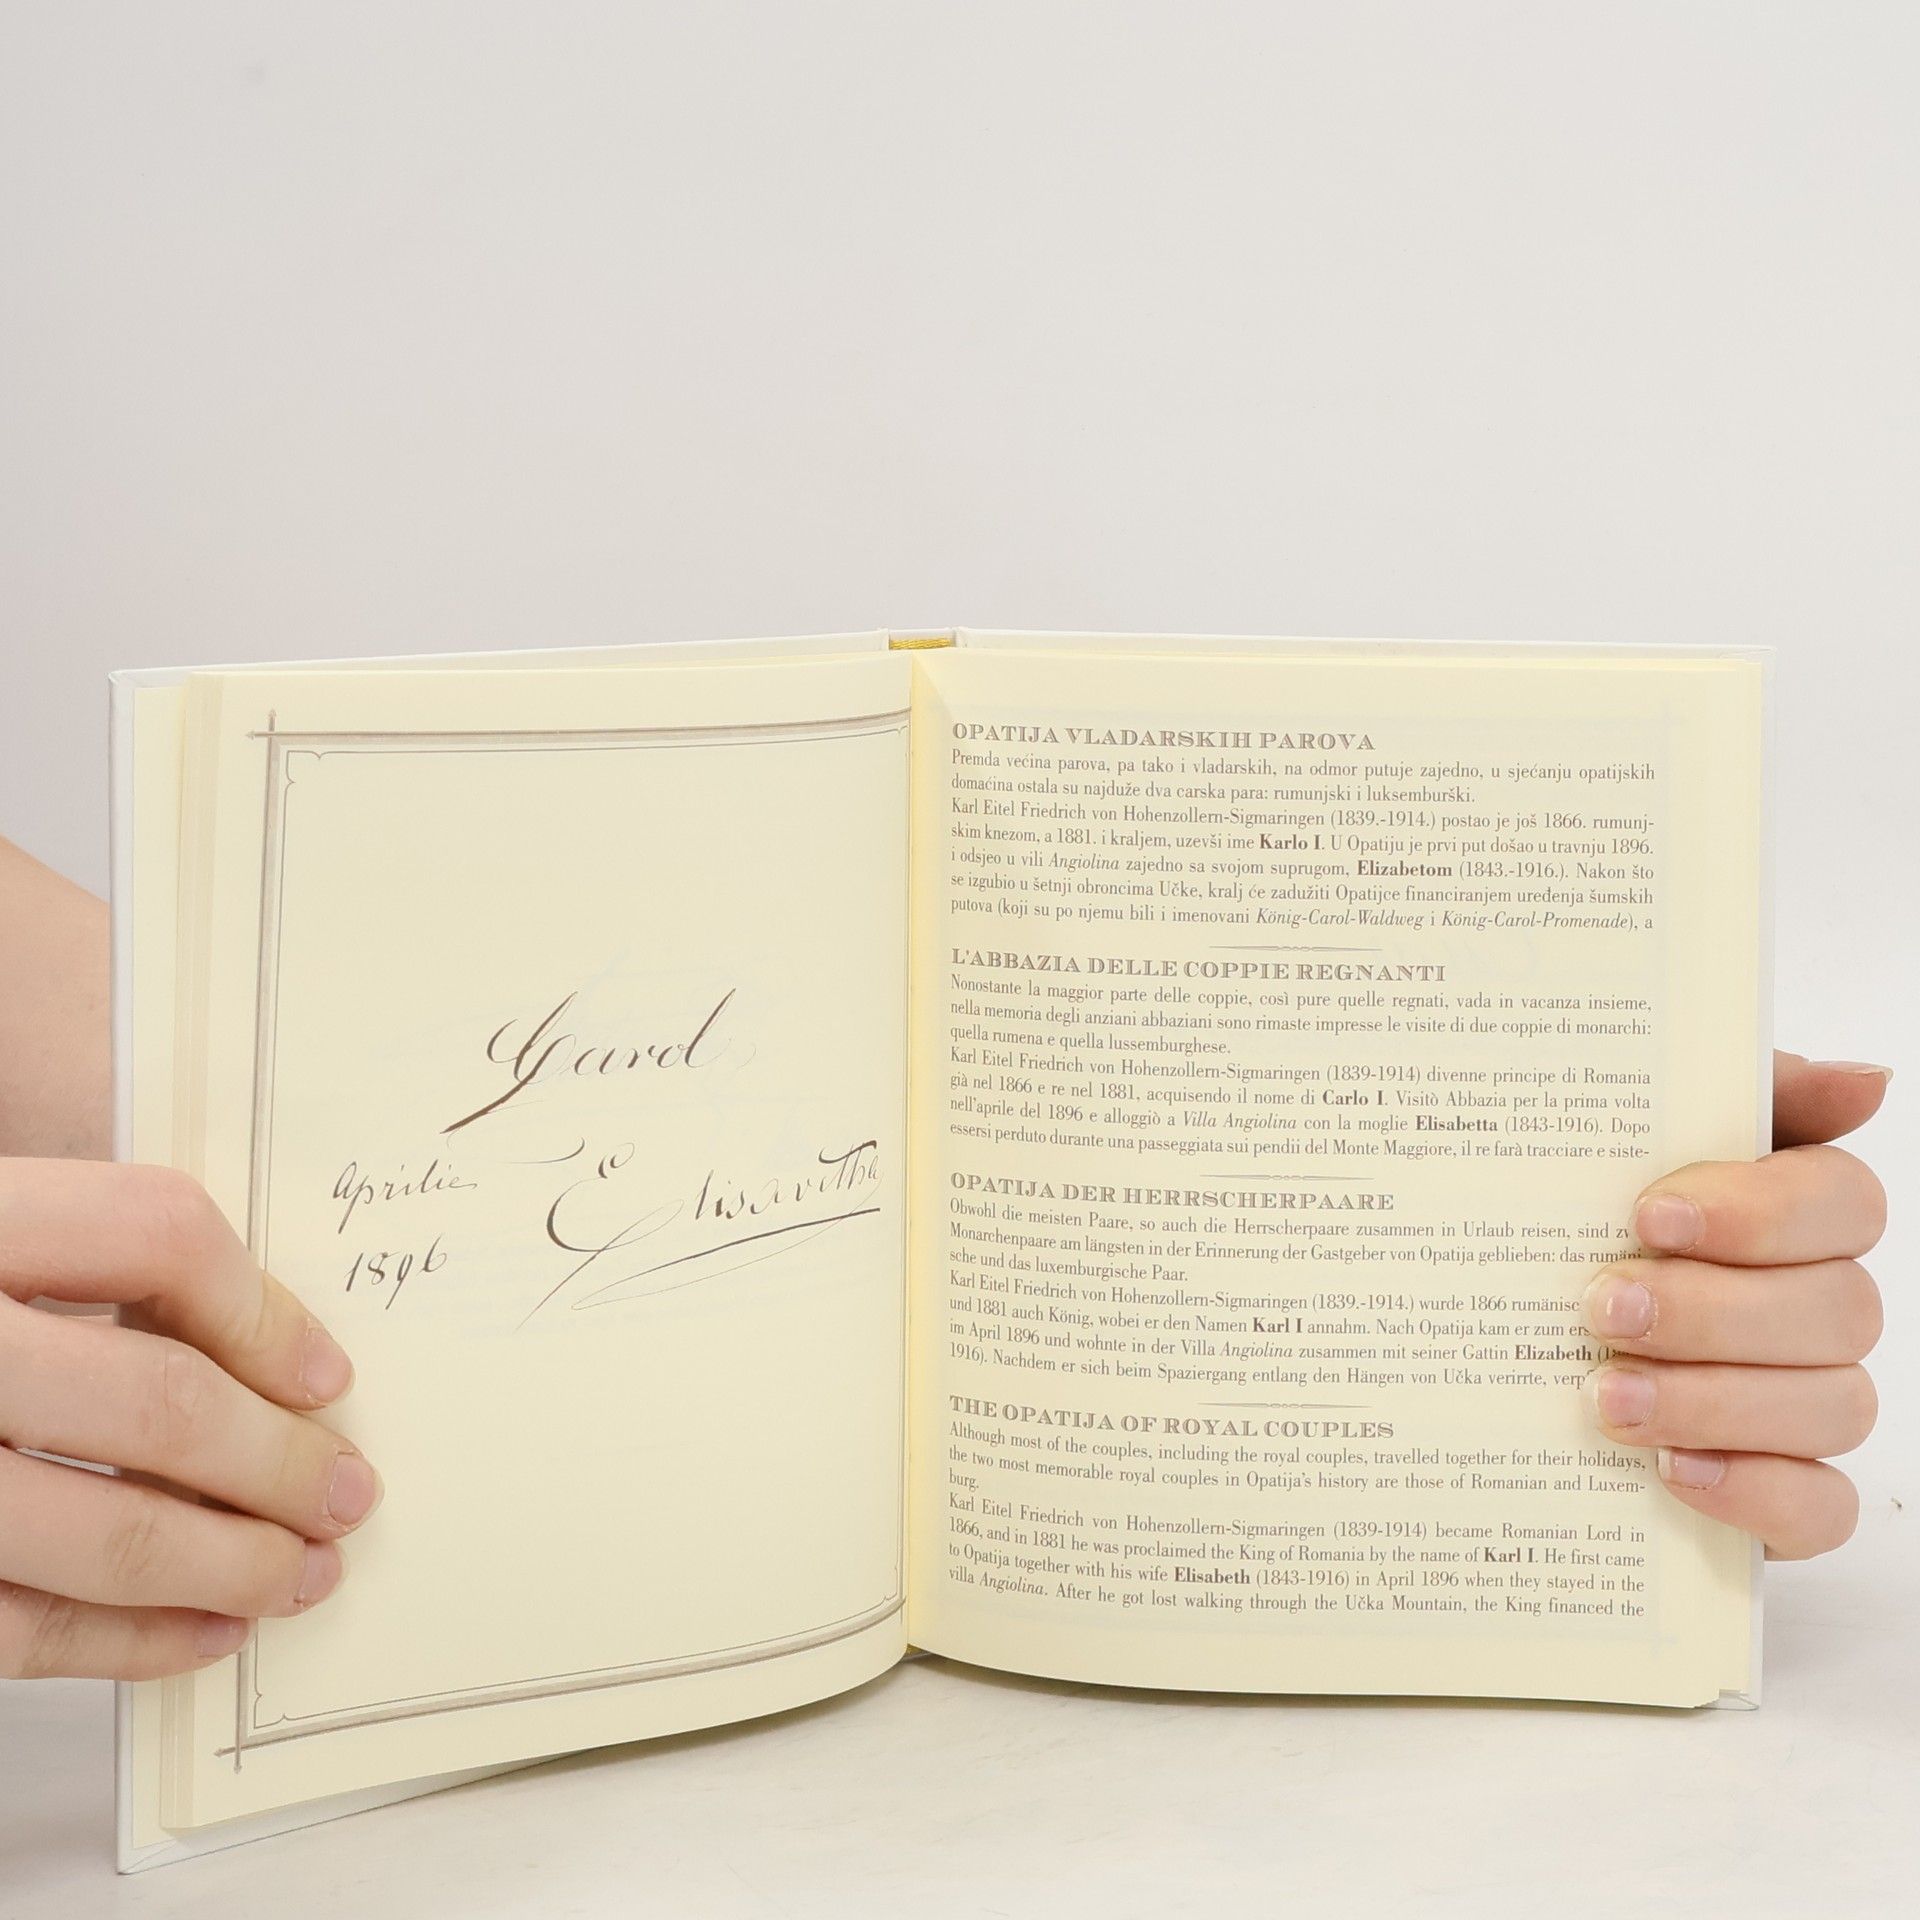 Carol
Aprilie
Elisavetha
1896
OPATIJA VLADARSKIH PAROVA
Premda većina parova, pa tako i vladarskih, na odmor putuje zajedno, u sjećanju opatijskih
domaćina ostala su najduže dva carska para: rumunjski i luksemburški.
Karl Eitel Friedrich von Hohenzollern-Sigmaringen (1839.-1914.) postao je još 1866. rumunj-
skim knezom, a 1881. i kraljem, uzevši ime Karlo I. U Opatiju je prvi put došao u travnju 1896.
i odsjeo u vili Angiolina zajedno sa svojom suprugom, Elizabetom (1843.-1916.). Nakon što
se izgubio u šetnji obroncima Učke, kralj će zadužiti Opatijce financiranjem uređenja šumskih
putova (koji su po njemu bili i imenovani König-Carol-Waldweg i König-Carol-Promenade), a
L'ABBAZIA DELLE COPPIE REGNANTI
Nonostante la maggior parte delle coppie, così pure quelle regnati, vada in vacanza insieme,
nella memoria degli anziani abbaziani sono rimaste impresse le visite di due coppie di monarchi:
quella rumena e quella lussemburghese.
Karl Eitel Friedrich von Hohenzollern-Sigmaringen (1839-1914) divenne principe di Romania
già nel 1866 e re nel 1881, acquisendo il nome di Carlo I. Visitò Abbazia per la prima volta
nell'aprile del 1896 e alloggiò a Villa Angiolina con la moglie Elisabetta (1843-1916). Dopo
essersi perduto durante una passeggiata sui pendii del Monte Maggiore, il re farà tracciare e siste-
OPATIJA DER HERRSCHERPAARE
Obwohl die meisten Paare, so auch die Herrscherpaare zusammen in Urlaub reisen, sind
Monarchenpaare am längsten in der Erinnerung der Gastgeber von Opatija geblieben: das rumäni
sche und das luxemburgische Paar.
Karl Eitel Friedrich von Hohenzollern-Sigmaringen (1839.-1914.) wurde 1866 rumänisc
und 1881 auch König, wobei er den Namen Karl I annahm. Nach Opatija kam er zum
im April 1896 und wohnte in der Villa Angiolina zusammen mit seiner Gattin Elizabeth
1916). Nachdem er sich beim Spaziergang entlang den Hängen von Učka verirrte,
THE OPATIJA OF ROYAL COUPLES
Although most of the couples, including the royal couples, travelled together for their holidays,
the two most memorable royal couples in Opatija's history are those of Romanian and Luxem-
burg.
Karl Eitel Friedrich von Hohenzollern-Sigmaringen (1839-1914) became Romanian Lord in
1866, and in 1881 he was proclaimed the King of Romania by the name of Karl I. He first came
to Opatija together with his wife Elisabeth (1843-1916) in April 1896 when they stayed in the
villa Angiolina. After he got lost walking through the Učka Mountain, the King financed the